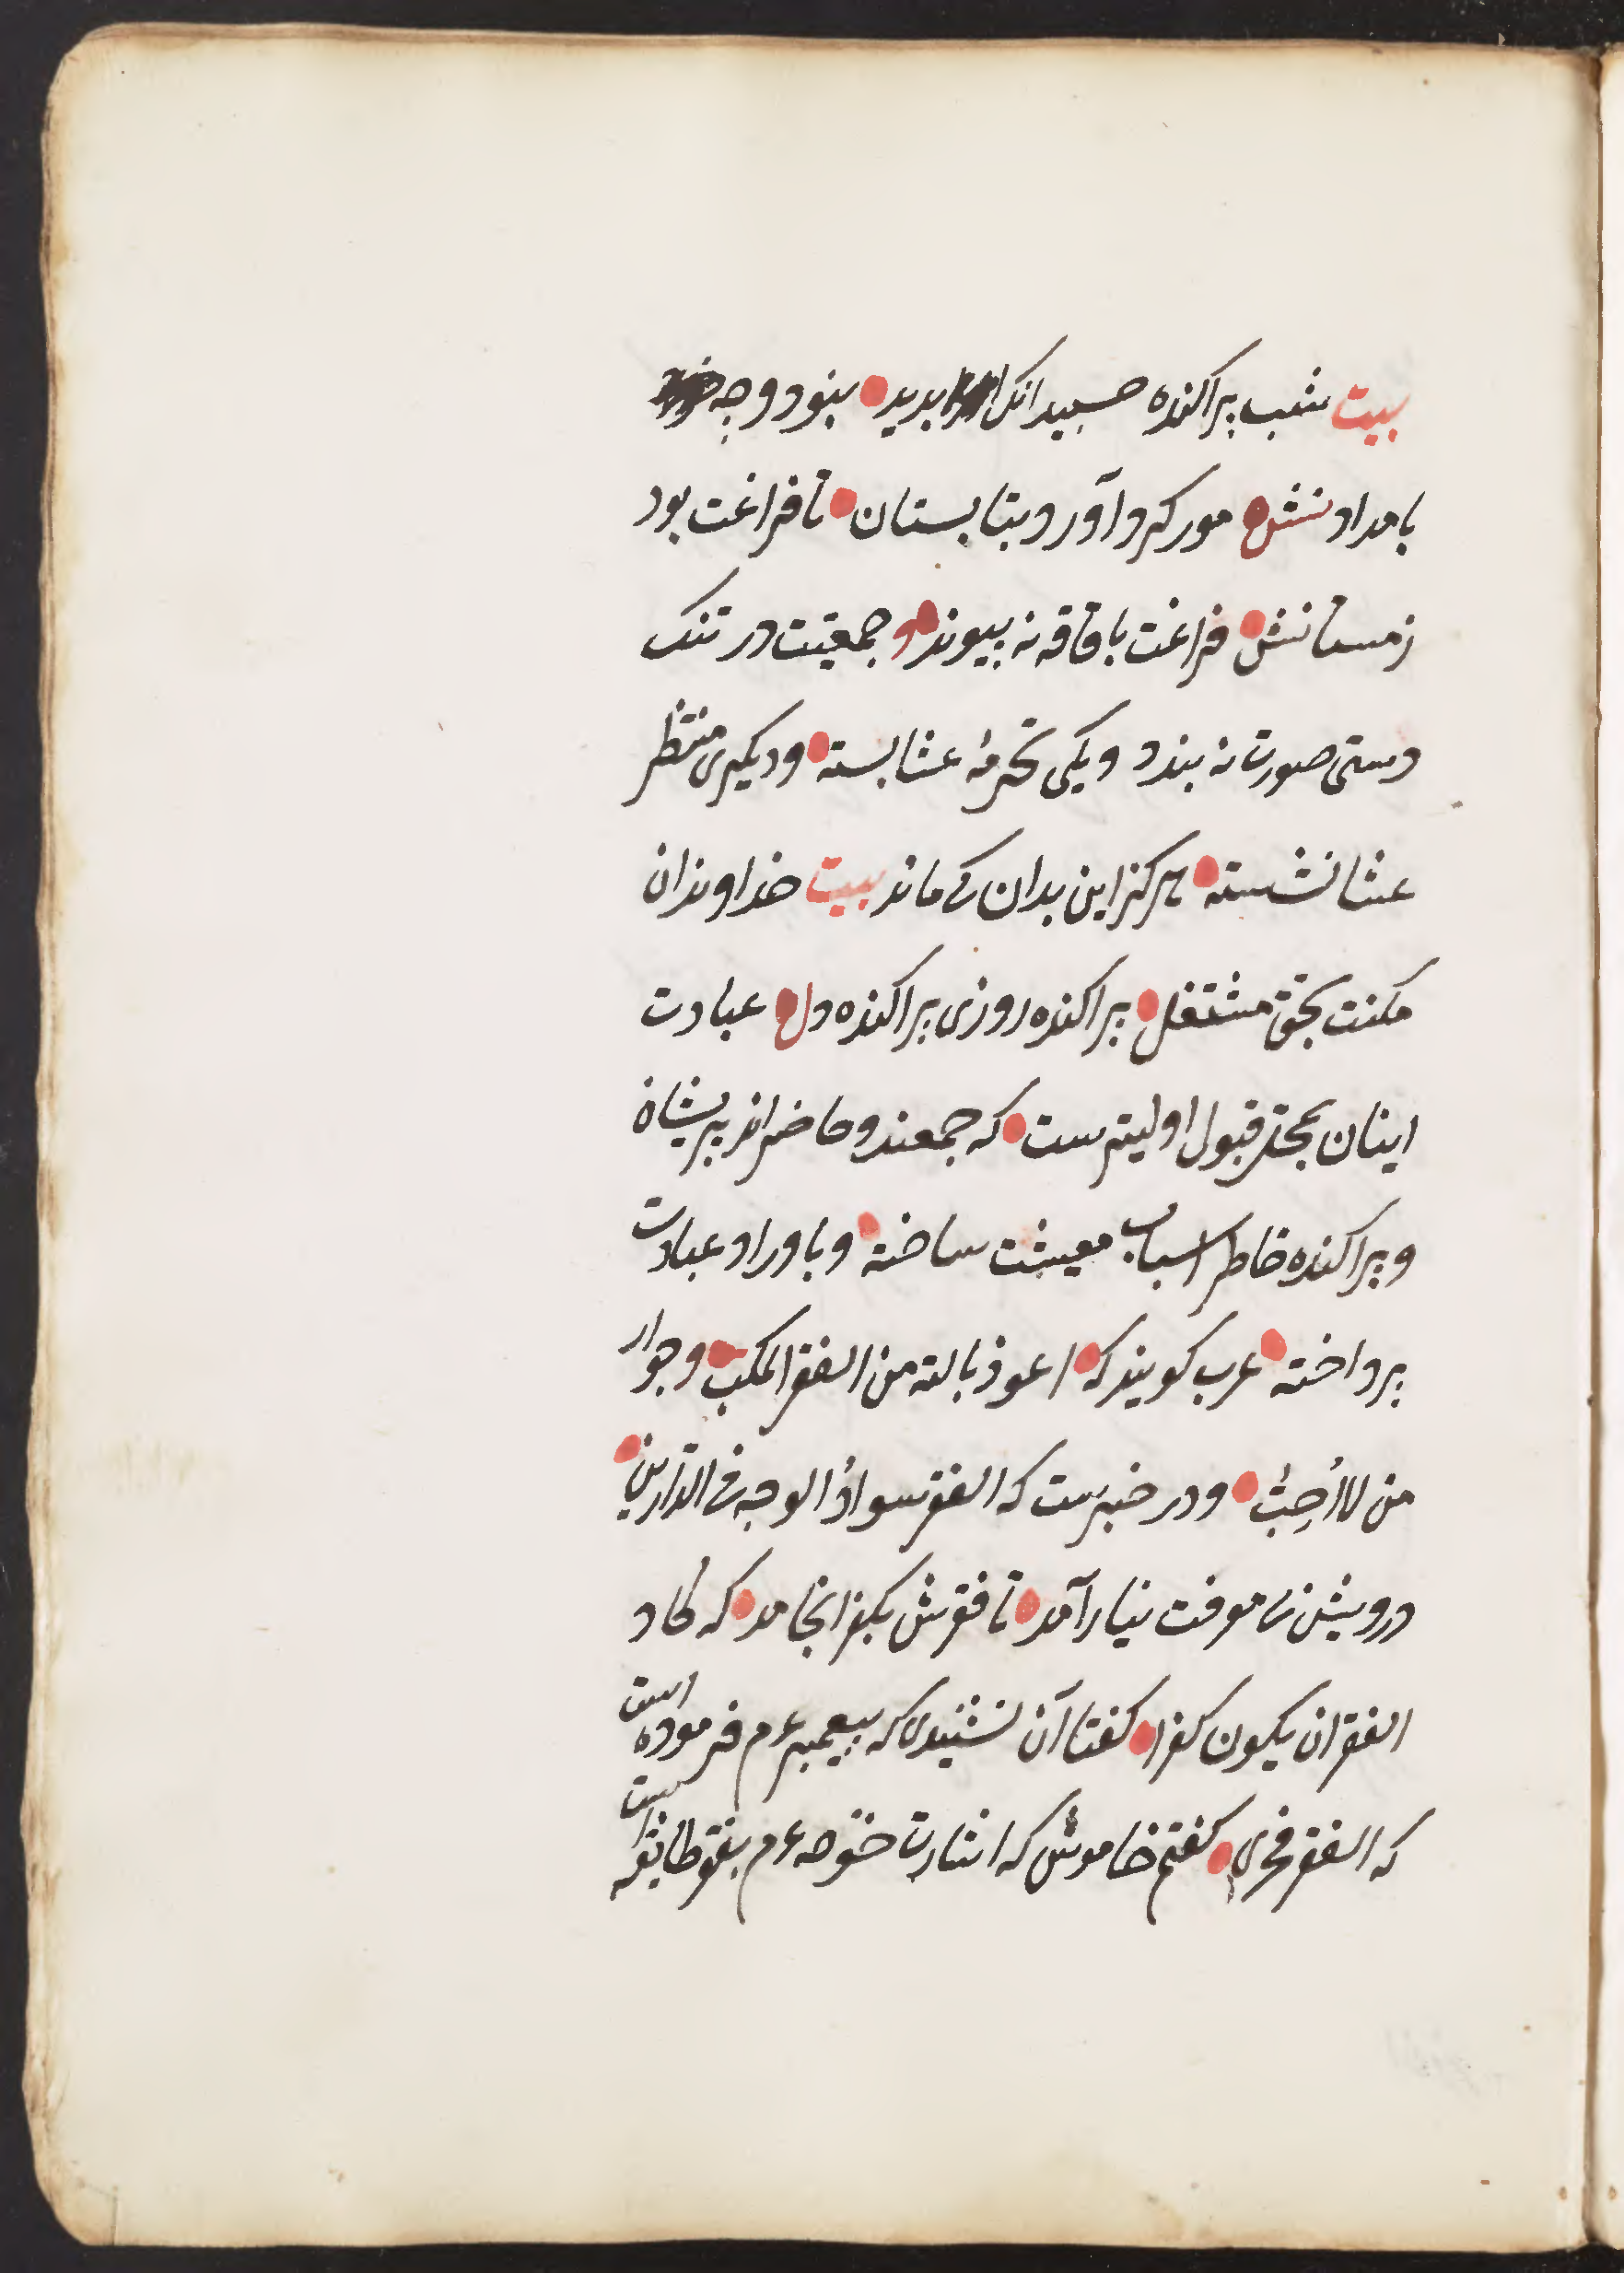 بیت شب پراکنده خسبید انکه بدید بنود وجه
بامدادنش مور کرد آورد بتابستان تا فراغت بود
زمستانش فراغت با فاقه نه پیوندد و جمعیّت در تنک
دستی صورت نه بندد و یکی تحرمهٔ عشا بسته و دیکری منتظر
عشا نشسته هرکز این بدان کی ماند بیت خداوندان
مکنت بحق مشتغل پراکنده روزی پراکنده دل عبادت
اینان بمحل قبول اولیترست که جمعند و حاضر اند پریشان
و پراکنده خاطر اسباب معیشت ساخته و باوراد عبادت
پرداخته عرب کویند که اعوذ بالله من الفقر المکب و جوار
من لا اُحِبُّ و در خبرست که الفقر سوادُ الوجه فی الدّارین
درویش بی معرفت نیارآمد تا فقرش بکفر انجامد که کاد
الفقر ان یکون کفرا کفتا آن نشنیدی که پیغمبر عم فرموده است
که الفقر فخری کفتم خاموش که اشارت خوٰجه عم بفقر طایفه است